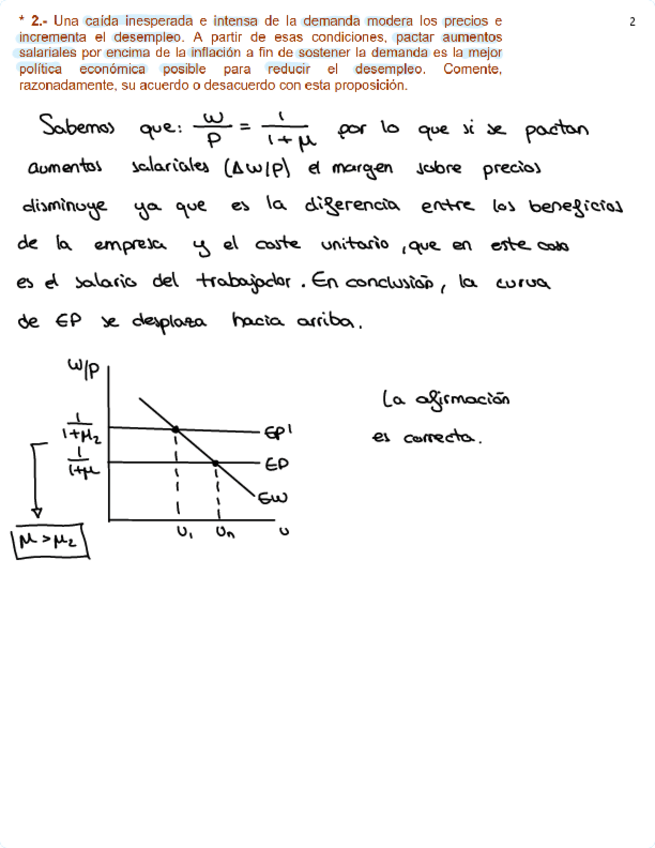 * 2.- Una caída inesperada e intensa de la demanda modera los precios e
2
incrementa el desempleo. A partir de esas condiciones, pactar aumentos
salariales por encima de la inflación a fin de sostener la demanda es la mejor
política económica posible para reducir el desempleo. Comente,
razonadamente, su acuerdo o desacuerdo con esta proposición.
Sabemos que: W/P = 1/1+μ por lo que si se pactan
aumentos salariales (ΔW/P) el margen sobre precios
disminuye ya que es la diferencia entre los beneficios
de la empresa y el coste unitario, que en este caso
es el salario del trabajador. En conclusión, la curva
de EP se desplaza hacia arriba.
W/P
La afirmación
es correcta.
1/1+μ2
EP'
1/1+μ
EP
EW
μ>μ2
U1 Un U